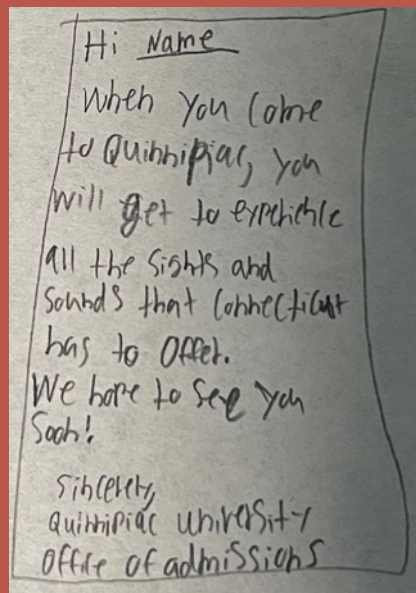 Hi Name
When you come
to Quinnipiac, you
will get to experience
all the sights and
sounds that Connecticut
has to offer.
We hope to see you
soon!
Sincerely,
Quinnipiac university
Office of admissions